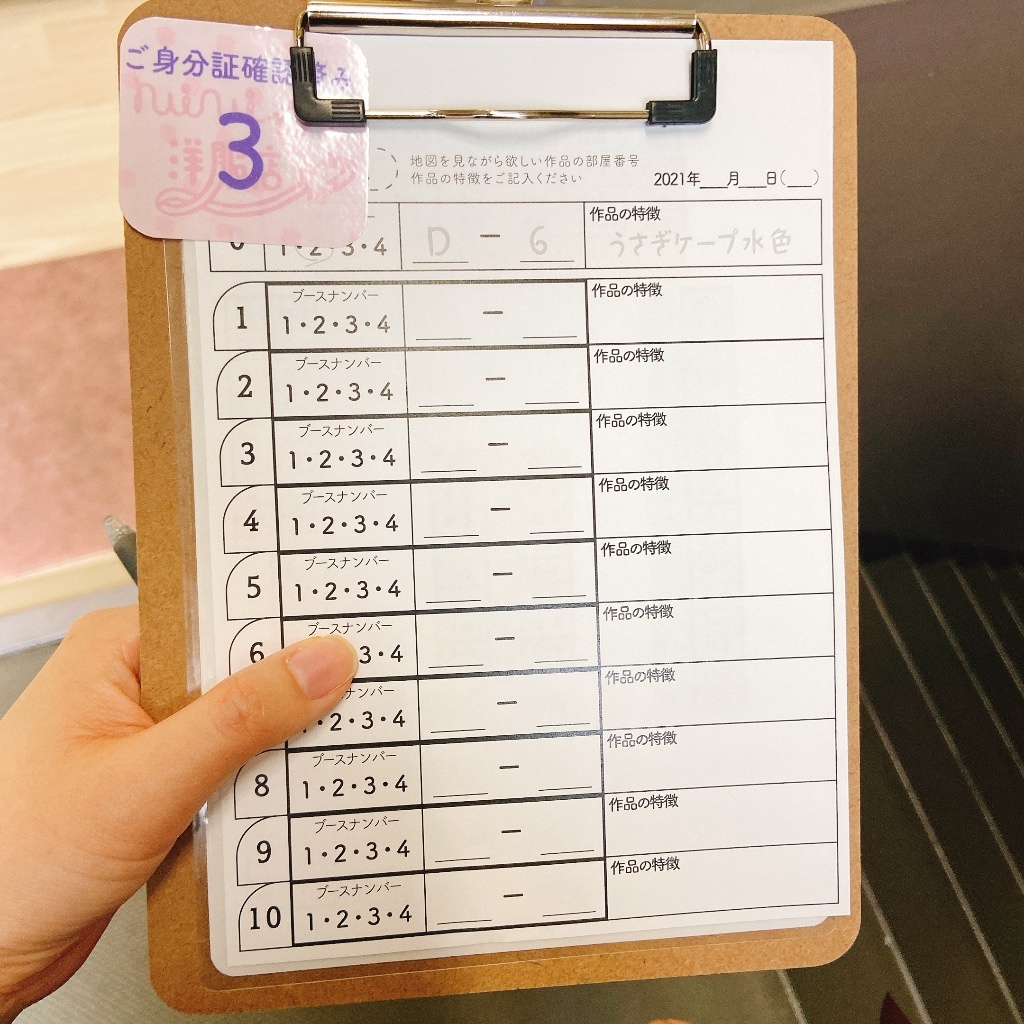 ご身分証確認済み
3
地図を見ながら欲しい作品の部屋番号
作品の特徴をご記入ください
2021年___月___日(___)
1・2・3・4 D - 6 作品の特徴
うさぎケープ水色
1 ブースナンバー 作品の特徴
1・2・3・4 ___ - ___
2 ブースナンバー 作品の特徴
1・2・3・4 ___ - ___
3 ブースナンバー 作品の特徴
1・2・3・4 ___ - ___
4 ブースナンバー 作品の特徴
1・2・3・4 ___ - ___
5 ブースナンバー 作品の特徴
1・2・3・4 ___ - ___
6 ブースナンバー 作品の特徴
3・4 ___ - ___
ナンバー 作品の特徴
2・3・4 - ___
8 ブースナンバー 作品の特徴
1・2・3・4 ___ - ___
9 ブースナンバー 作品の特徴
1・2・3・4 ___ - ___
10 ブースナンバー 作品の特徴
1・2・3・4 ___ - ___